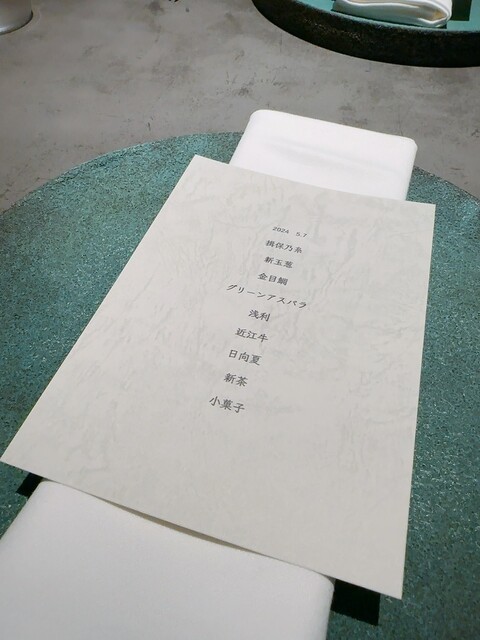 2024 5.7
揖保乃糸
新玉葱
金目鯛
グリーンアスパラ
浅利
近江牛
日向夏
新茶
小菓子